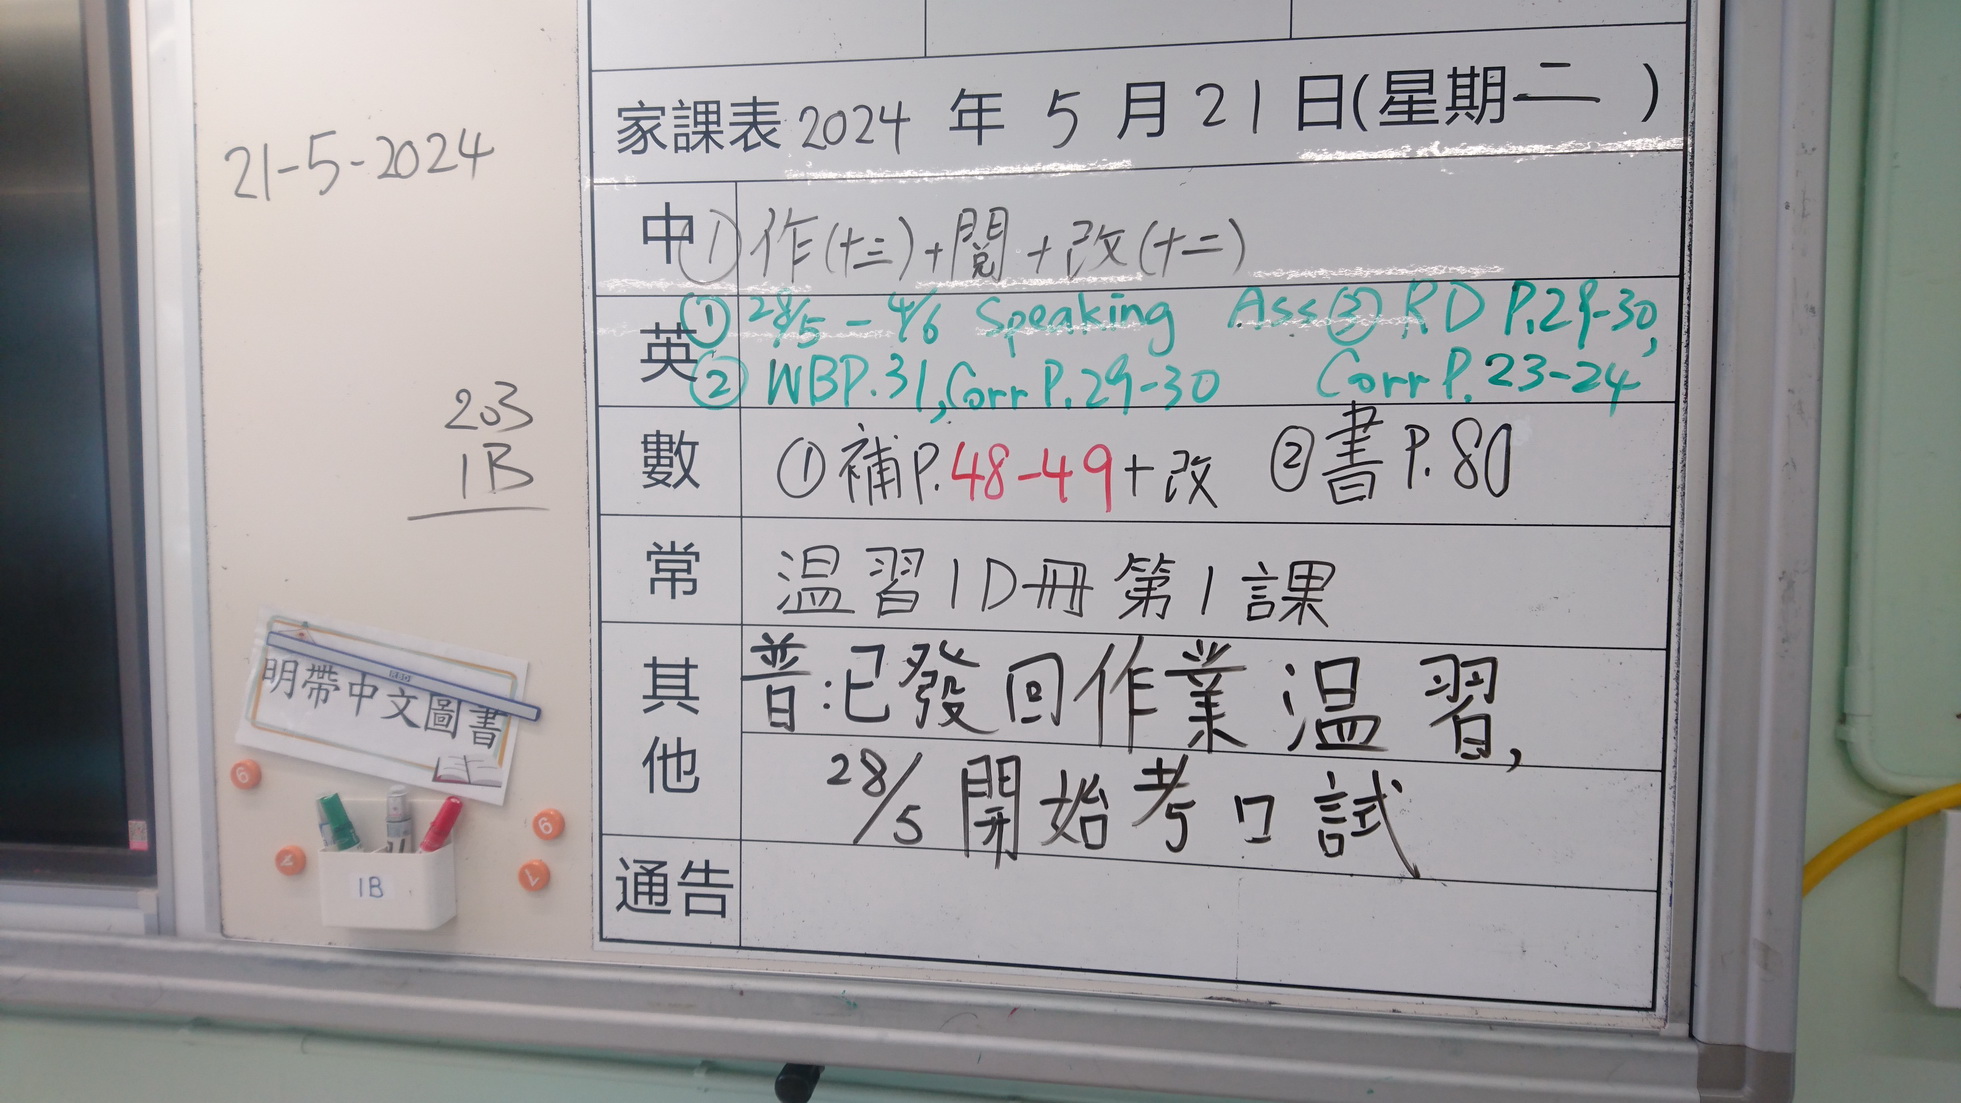 21-5-2024
203
1B
明帶中文圖書
1B
家課表 2024 年 5 月 21 日(星期二 )
中 ① 作(十三)+閱+改(十二)
英 ① 28/5 - 4/6 Speaking Ass ③ R.D P.29-30,
② WBP.31, Corr P.29-30 Corr P.23-24
數 ① 補P.48-49+改 ② 書 P.80
常 温習1D冊第1課
其他 普:已發回作業温習,
28/5 開始考口試
通告